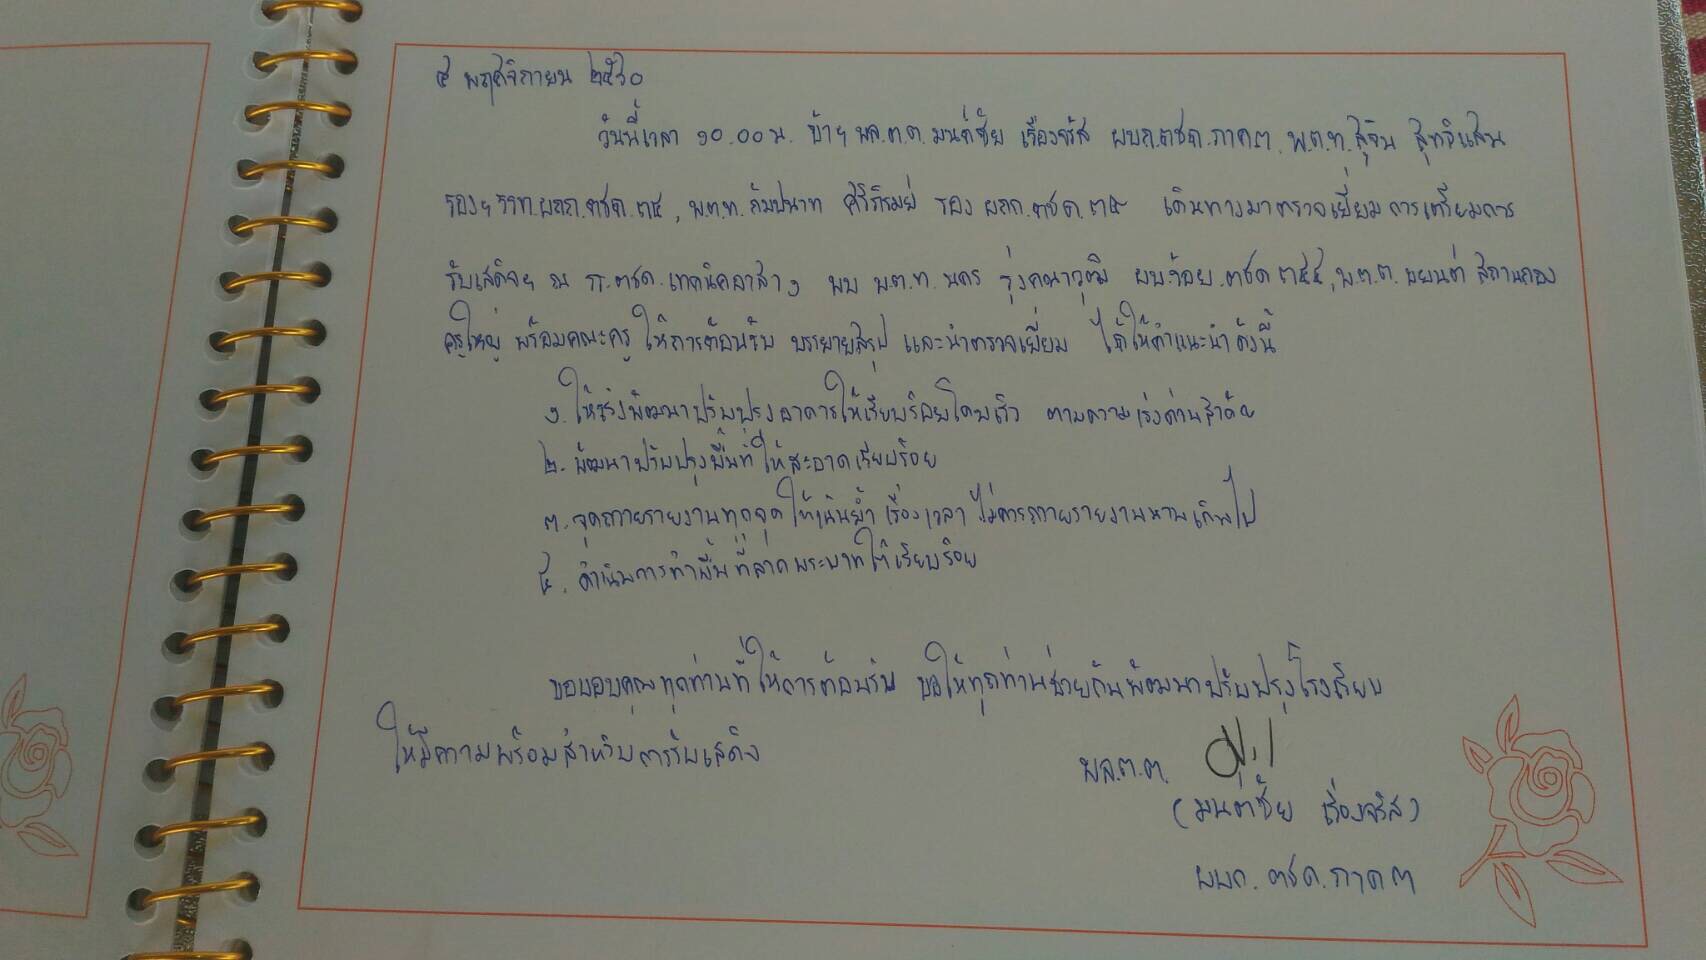 ๕ พฤศจิกายน ๒๕๖๐
วันนี้เวลา ๑๐.๐๐ น. ข้าฯ พล.ต.ต.มนต์ชัย เรืองจรัส ผบก.ตชด.ภาค๓, พ.ต.ท.สุจิน สุทธิแสน
รองฯ รรท.ผกก.ตชด.๓๕, พ.ต.ท.กัมปนาท ศิริภิรมย์ รอง ผกก.ตชด.๓๕ เดินทางมาตรวจเยี่ยมการเตรียมการ
รับเสด็จฯ ณ รร.ตชด.เทคนิคดุสิต พบ พ.ต.ท.นคร รุ่งคณาวุฒิ ผบ.ร้อย.ตชด.๓๕๕, พ.ต.ต.
ครูใหญ่ พร้อมคณะครู ให้การต้อนรับ บรรยายสรุป และนำตรวจเยี่ยม ได้ให้คำแนะนำดังนี้
๑. ให้เร่งพัฒนาปรับปรุงอาคารให้เรียบร้อยโดยเร็ว ตามความเร่งด่วน
๒. พัฒนาปรับปรุงพื้นที่ให้สะอาดเรียบร้อย
๓. จุดถวายรายงานทุกจุด ให้เน้นย้ำเรื่องเวลา ไม่ควรถวายรายงานนานเกินไป
๔. ดำเนินการทำพื้นที่ลาดพระบาทให้เรียบร้อย
ขอขอบคุณทุกท่านที่ให้การต้อนรับ ขอให้ทุกท่านช่วยกันพัฒนาปรับปรุงโรงเรียน
ให้มีความพร้อมสำหรับการรับเสด็จ
พล.ต.ต.
(มนต์ชัย เรืองจรัส)
ผบก.ตชด.ภาค ๓